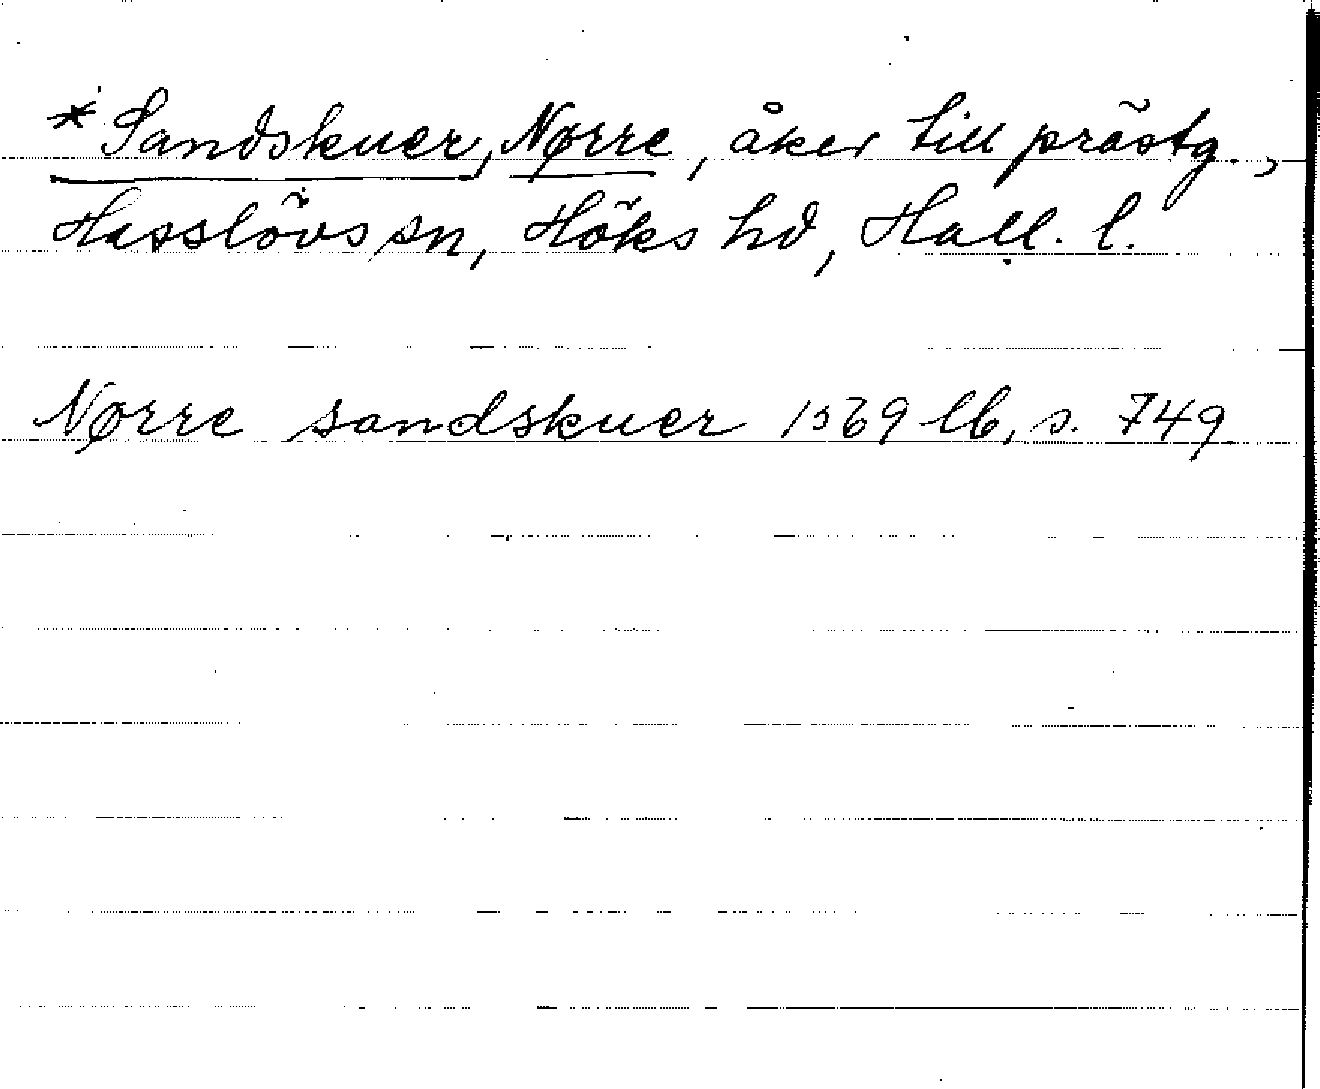 *Sandskuer, Nørre, åker till prästg.,
Hasslövs sn, Höks hd, Hall. l.
Nørre sandskuer 1569 lb, s. 749